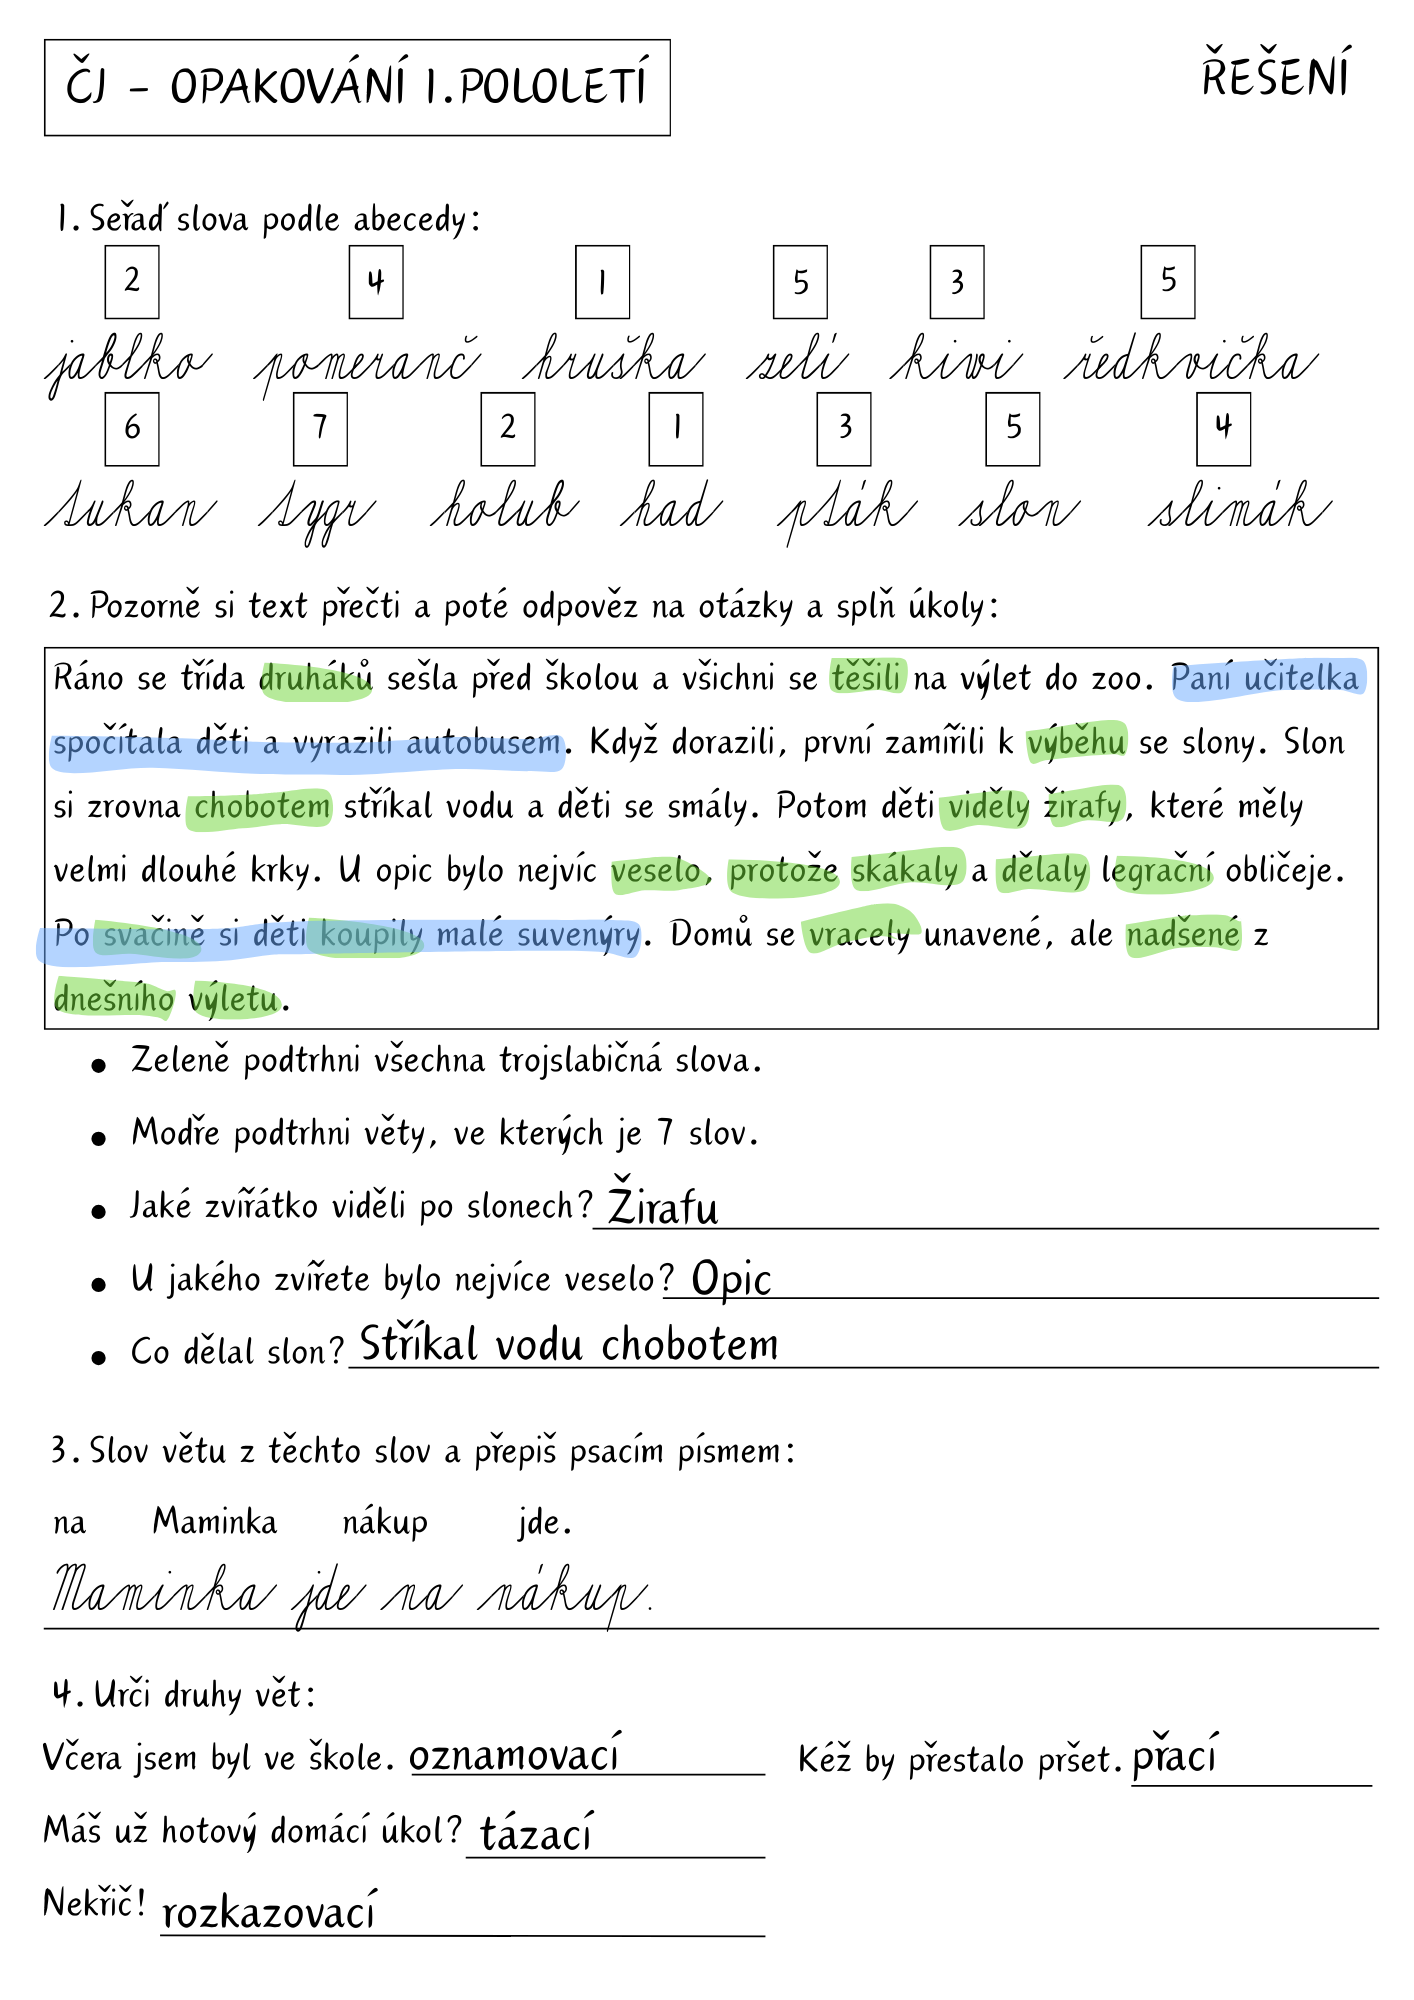 ČJ - OPAKOVÁNÍ 1.POLOLETÍ
ŘEŠENÍ
1. Seřaď slova podle abecedy:
2 4 1 5 3 5
jablko pomeranč hruška zelí kiwi ředkvička
6 7 2 1 3 5 4
tukan tygr holub had pták slon slimák
2. Pozorně si text přečti a poté odpověz na otázky a splň úkoly:
Ráno se třída druháků sešla před školou a všichni se těšili na výlet do zoo. Paní učitelka
spočítala děti a vyrazili autobusem. Když dorazili, první zamířili k výběhu se slony. Slon
si zrovna chobotem stříkal vodu a děti se smály. Potom děti viděly žirafy, které měly
velmi dlouhé krky. U opic bylo nejvíc veselo, protože skákaly a dělaly legrační obličeje.
Po svačině si děti koupily malé suvenýry. Domů se vracely unavené, ale nadšené z
dnešního výletu.
• Zeleně podtrhni všechna trojslabičná slova.
• Modře podtrhni věty, ve kterých je 7 slov.
• Jaké zvířátko viděli po slonech? Žirafu
• U jakého zvířete bylo nejvíce veselo? Opic
• Co dělal slon? Stříkal vodu chobotem
3. Slov větu z těchto slov a přepiš psacím písmem:
na Maminka nákup jde.
Maminka jde na nákup.
4. Urči druhy vět:
Včera jsem byl ve škole. oznamovací Kéž by přestalo pršet. přací
Máš už hotový domácí úkol? tázací
Nekřič! rozkazovací